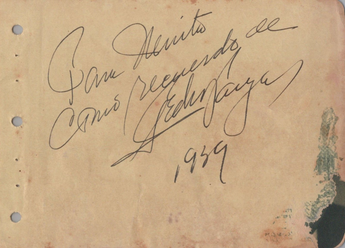 Para Benito
como recuerdo de
Pedro Vargas
1939